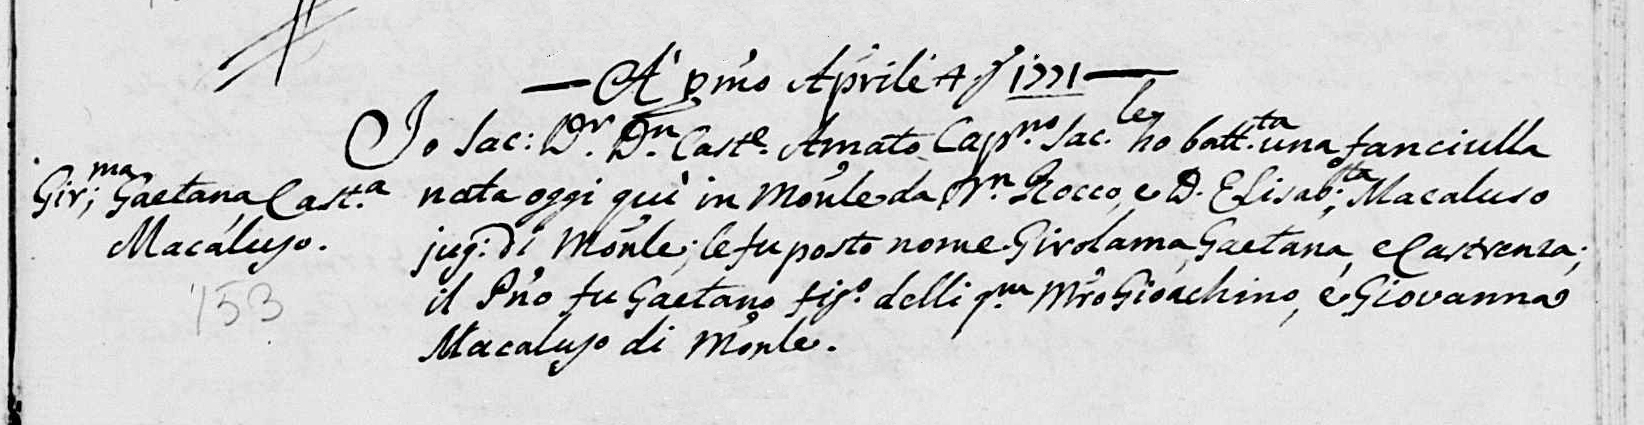 A' pmo Aprile 4 I. 1771
Io Sac: Dr. Dn. Cast.e Amato Capp.no Sac.le ho batt.ta una fanciulla
Gir;ma Gaetana Cast.a
Macaluso.
nata oggi quì in Mõnle da Dn. Rocco, e D. Elisab;ta Macaluso
jug: di Mõnle; le fu posto nome Girolama, Gaetana, e Castrenza;
il Pño fu Gaetano fig.o delli q.m Mrõ Gioachino, e Giovanna
Macaluso di Mõnle.
153